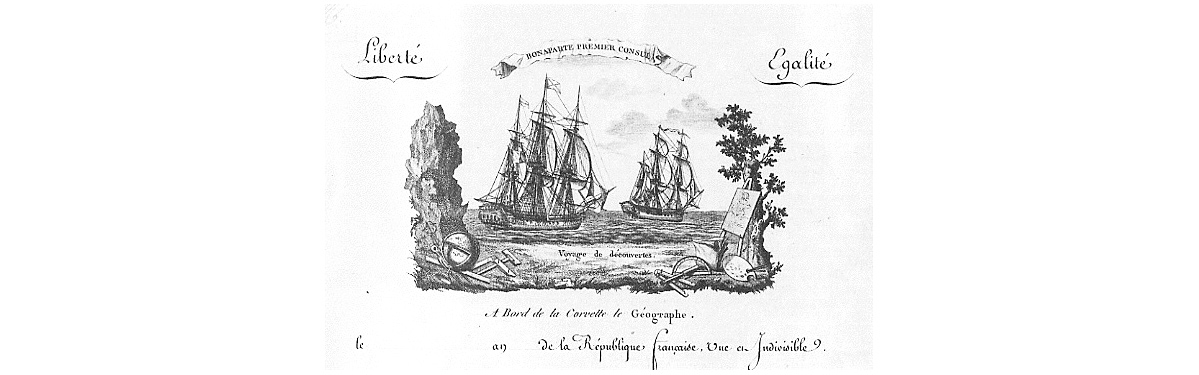 Liberté
BONAPARTE PREMIER CONSUL
Egalité
Voyage de découvertes.
A Bord de la Corvette le Géographe.
le an de la République Française, Une et Indivisible.